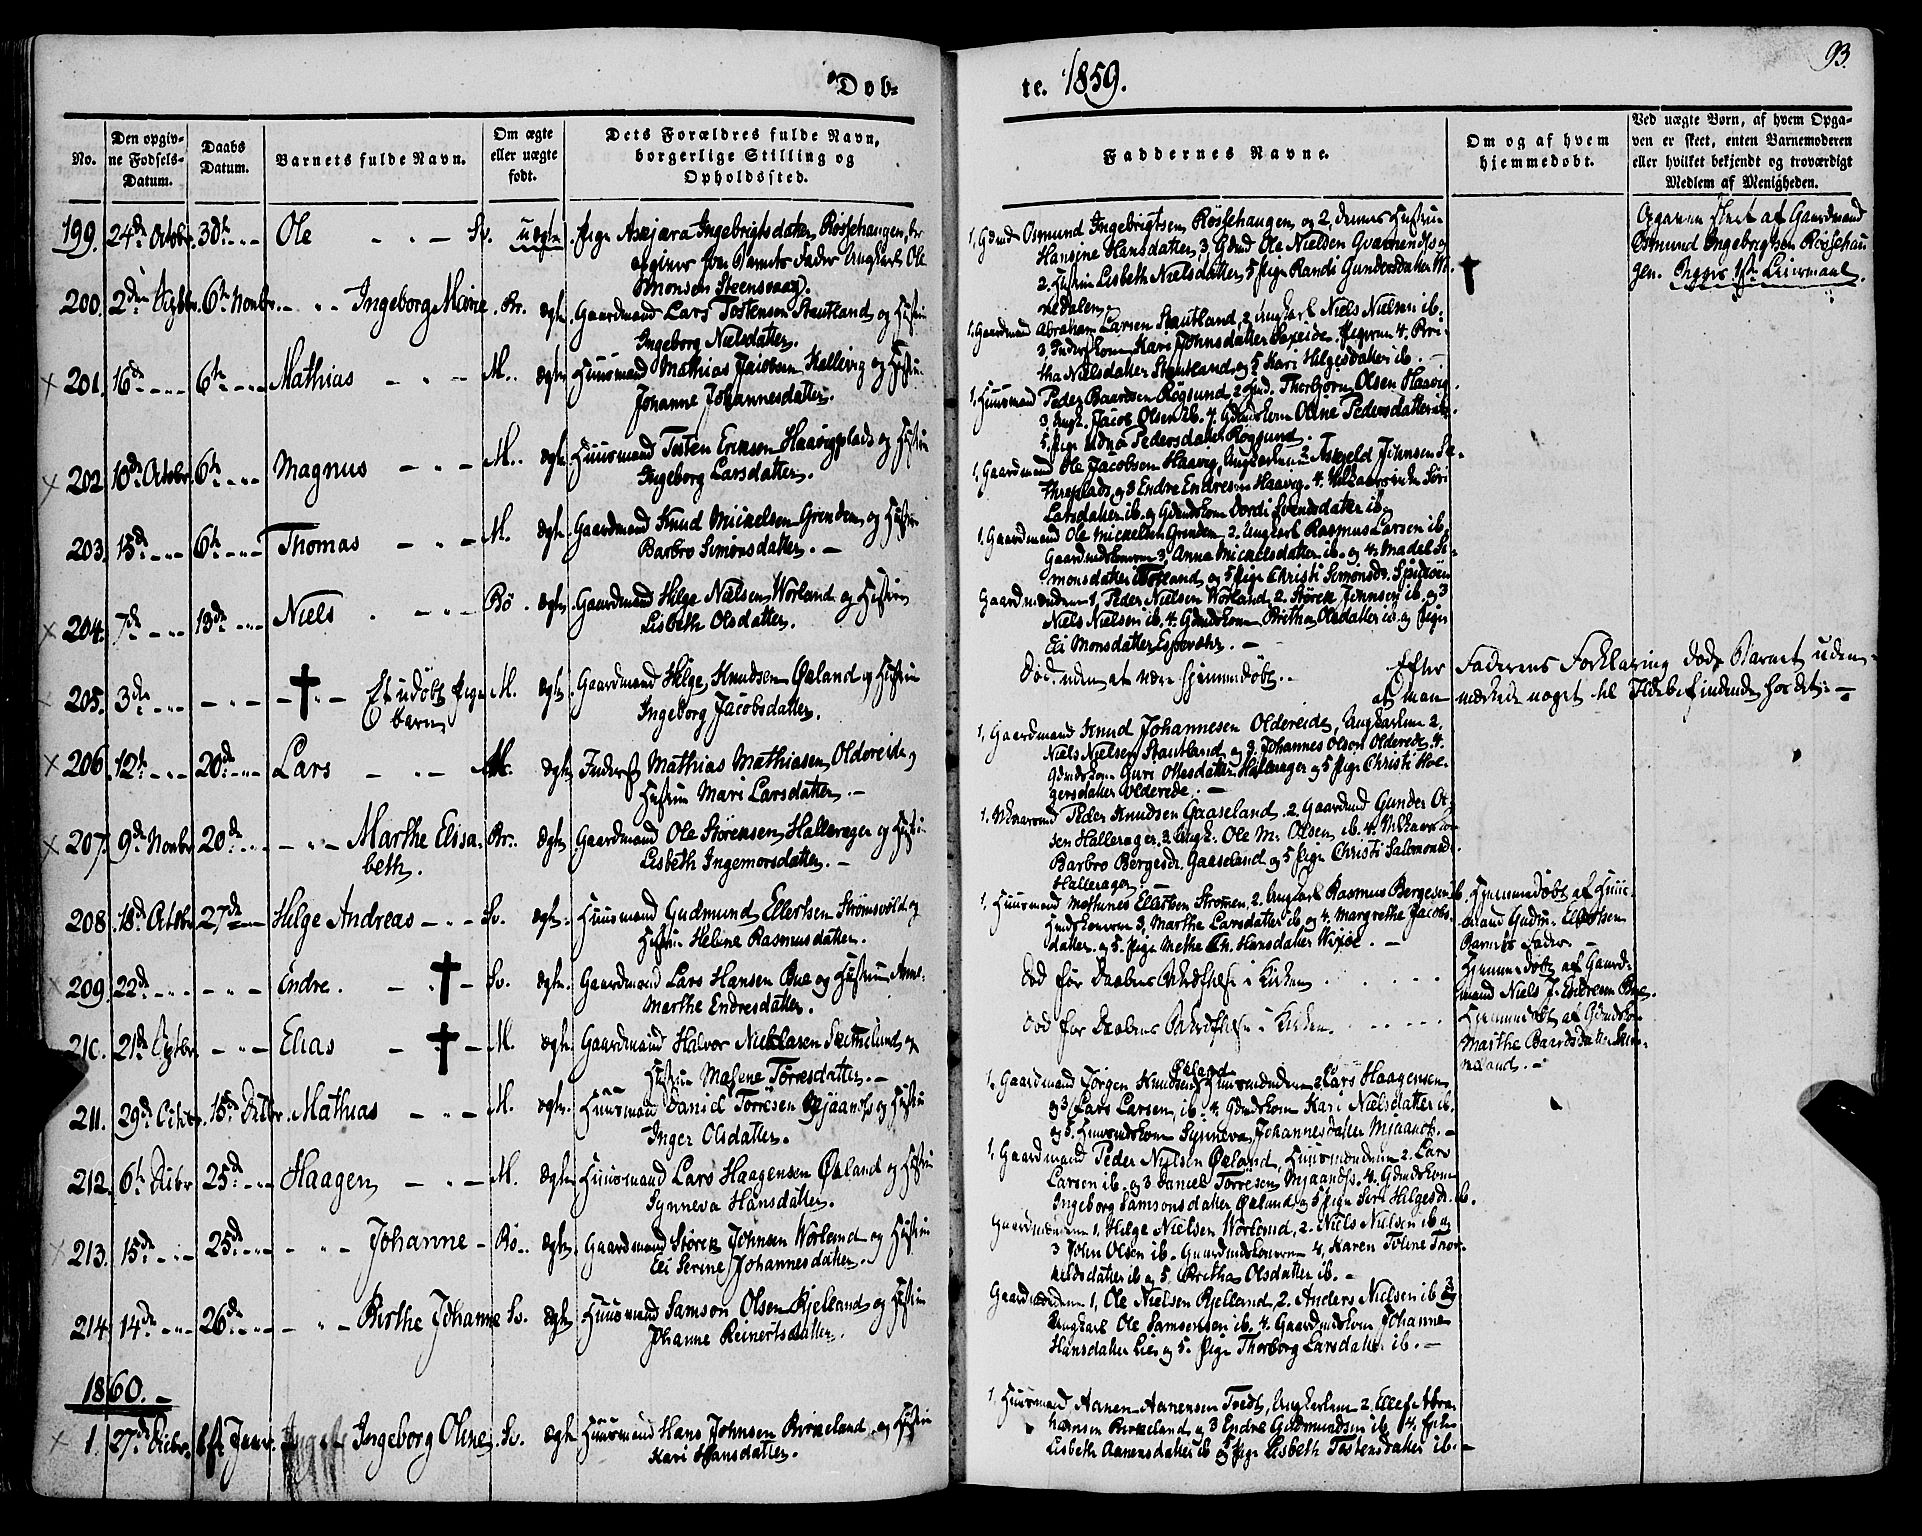 Døb-
te. 1859.
93.
No.
Den opgiv-
ne Fødsels-
Datum.
Daabs
Datum.
Barnets fulde Navn.
Om ægte
eller uægte
født.
Dets Forældres fulde Navn,
borgerlige Stilling og
Opholdssted.
Faddernes Navne.
Om og af hvem
hjemmedøbt.
Ved uægte Børn, af hvem Opga-
ven er skeet, enten Barnemoderen
eller hvilket bekjendt og troværdigt
Medlem af Menigheden.
199. 24de Octbr. 30te Ole Sv. uægte. Pige Asgjæra Ingebrigtsdatter Røssehaugen,
opgiver for Barnets Fader Ungkarl Ole
Simonsen Steensvaag.
1, Gdmd. Osmund Ingebrigtsen Røssehaugen og 2, dennes Hustru
Hansine Hansdatter, 3, Gdmd Ole Nielsen Qvarnenæs og
2. Hustru Lisbeth Nielsdatter, 5 Pige Randi Gundersdatter
medalen.
Opgaven skeet af Gaardmand
Osmund Ingebrigtsen Røssehau
gen. 1ste Leiermaal.
200. 6te Novbr. Ingeborg Mine Br. ægte. Gaardmand Lars Tostensen Stautland og Hustru
Ingeborg Nielsdatter.
1. Gaardmand Abraham Larsen Stautland, 2, Ungkarl Niels Nielsen ib.
3, Kari Johnsdatter 4. Bri-
tha Nielsdatter Stautland og 5 Kari Helgesdatter ib.
201. 16de 6te Mathias M. ægte Huusmand Mathias Jacobsen Kallevig og Hustru
Johanne Johannesdatter.
1, Huusmand Peder Baardsen Røgsund, 2 Gmd. Thorbjørn Olsen Haavig
3, Ungk. Jacob Olsen ib. 4. Gdmdskone Oline Pedersdatter ib.
5 Pige Udna Pedersdatter Røgsund.
202. 10de Octbr. 6te Magnus M. ægte Huusmand Tosten Eriksen Haavigplads og Hustru
Ingeborg Larsdatter.
1, Gaardmand Ole Jacobsen Haavig, Ungkarlene 2 Askjeld Johnsen Sæ-
threplads og 3 Endre Endresen Haavig. 4. Siri
Larsdatter ib. og Gdmdskone Dordi Svendsdatter ib.
203. 15de 6te Thomas M. ægte Gaardmand Knud Mickelsen Grenden og Hustru
Barbro Simonsdatter.
1. Gaardmand Ole Mickelsen Grenden 2. Ungkarl Rasmus Larsen ib.
Gaardmdskonerne 3, Anna Mickelsdatter ib. og 4. Madel Si-
monsdatter Totland og 5 Pige Christi Simonsdr. Spidsøen
204. 7de 13de Niels Bø. ægte. Gaardmand Helge Nielsen Worland og Hustru
Lisbeth Olsdatter.
Gaardmændene 1, Peder Nielsen Worland 2. Størck Johnsen ib. og 3
Niels Nielsen ib. 4. Gdmdskone Britha Olsdatter ib. og Pige
Eli Monsdatter Espevær.
205. 3de Et udøbt Pige
barn M. ægte. Gaardmand Helge Knudsen Økland og Hustru
Ingeborg Jacobsdatter.
Død uden at være hjemmedøbt. Efter Faderens Forklaring døde Barnet uden
at man mærkede noget til Ildebefindende hos det.
206. 12te 20de Lars M. ægte Inderst Mathias Mathiasen Oldereide og
Hustru Mari Larsdatter.
1, Gaardmand Knud Johannesen Oldereide, Ungkarlene 2.
Niels Nielsen Stautland og 3, Johannes Olson Oldereide 4.
Gdmdskone Guri Hallerager og 5 Pige Christi Hol-
gersdatter Oldereide.
207. 9de Novbr. 20de Marthe Elisa-
beth. Br. ægte Gaardmand Ole Størensen Hallerager og Hustru
Lisbeth Ingemorsdatter.
1. Peder Knudsen Gaaseland 2 Gaardmd Gunder Ol-
sen Hallerager 3 Ungk. Ole M. Olsen ib. 4.
Barbro Bergesdr. Gaaseland og 5 Pige Christi Salomonsdr.
Hallerager
208. 18de Octbr. 27de Helge Andreas Sv. ægte. Huusmand Gudmund Ellertsen Strømsvold og
Hustru Heline Rasmusdatter.
1, Huusmand Mathunes Ellertsen Strømen, 2. Ungkarl Rasmus Bergesen ib.
3, Marthe Larsdatter ib. og 4. Margrethe Jacobs-
datter. og 5. Pige Methe Th. Hansdatter
Hjemmedøbt af Huus-
mand Gudm. Ellertsen
Barnets Fader.
209. 22de Endre. Sv. ægte. Gaardmand Lars Hansen Bue og Hustru Anne
Marthe Endresdatter.
Død før Daabens Bekræftelse i Kirken
Hjemmedøbt af Gaard-
mand Niels J. Endresen Bue.
210. 21de Elias M. ægte Gaardmand Halvor Nicklasen Skimmeland og
Hustru Malene Torresdatter.
Død før Daabens Bekræftelse i Kirken
Hjemmedøbt af Gdmdsko-
Marthe Baardsdatter Skim-
meland.
211. 29de Octbr. 15de Decbr. Mathias M. ægte. Huusmand Daniel Torresen Mjaanæs og Hustru
Inger Olsdatter.
1. Gaardmand Jørgen Knudsen Økland Huusmændene 2, Lars Haagensen
og 3, Lars Larsen, ib. 4. Gdmdskone Kari Nielsdatter ib.
og 5. Huusmdskone Synneva Johannesdatter Mjaanæs.
212. 6te Decbr. 25de Haagen M. ægte Huusmand Lars Haagensen Økland og Hustru
Synneva Hansdatter.
1. Gaardmand Peder Nielsen Økland, Huusmændene 2. Lars
Larsen ib. og 3 Daniel Torresen Mjaanæs. 4. Gdmdskone
Ingeborg Samsonsdatter Økland og 5 Pige Siri Helgesdr. ib.
213. 15de 25de Johanne Bø. ægte. Gaardmand Størck Johnsen Worland og Hustru
Eli Serine Johannesdatter.
Gaardmændene 1, Helge Nielsen Worland, 2. Niels Nielsen ib og
3 John Olsen ib. Gaardmdskonerne 4, Karen Toline Thor-
kildsdatter ib og 5. Britha Olsdatter ib.
214. 14de 26de Birthe Johanne Sv. ægte Huusmand Samson Olsen Kjelland og Hustru
Johanne Reinertsdatter.
Gaardmændene 1, Ole Nielsen Kjelland, 2. Anders Nielsen ib 3
Ungkarl Ole Samsonsen ib. 4. Gaardmdskone Johanne
Hansdatter Lie og 5. Pige Thorborg Larsdatter ib.
1860.
1. 27de Decbr. 1ste Janr. Ingeborg Oline Sv. ægte Huusmand Hans Johnsen Birkeland og Hustru
Kari Hansdatter.
1. Huusmand Aanen Aanensen Tvedt, Ungkarlene 2, Ellef Abra-
hamsen Birkeland og 3 Endre Gudmundsen ib 4.
Lisbeth Aanensdatter ib 5 Pige Lisbeth Tostensdatter ib.